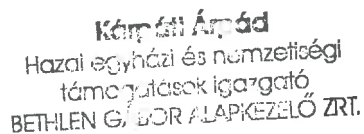 Kárpáti Árpád
Hazai egyházi és nemzetiségi
támogatások igazgató
BETHLEN GÁBOR ALAPKEZELŐ ZRT.